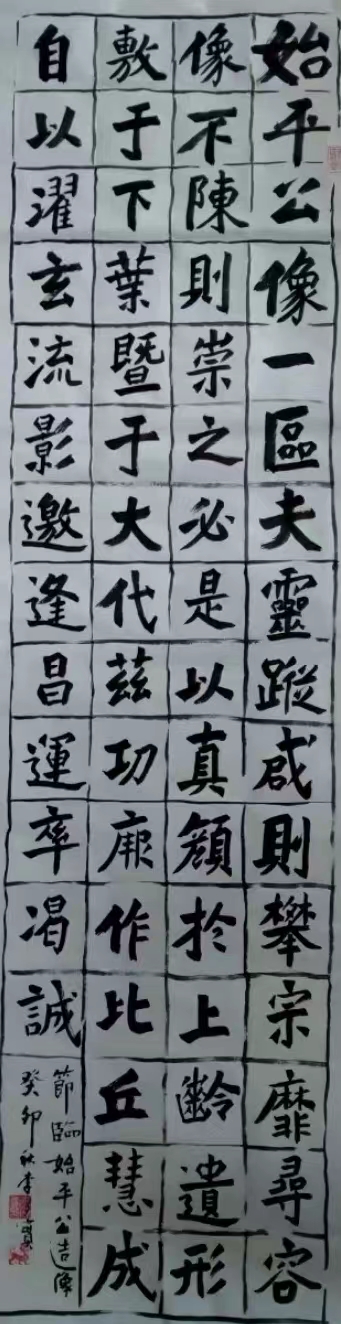 始平公像一區夫靈蹤咸則攀宗靡尋容
像不陳則崇之必是以真顏於上齡遺形
敷于下葉暨于大代茲功厥作比丘慧成
自以濯玄流影邀逢昌運率渴誠
節臨始平公造像
癸卯秋李